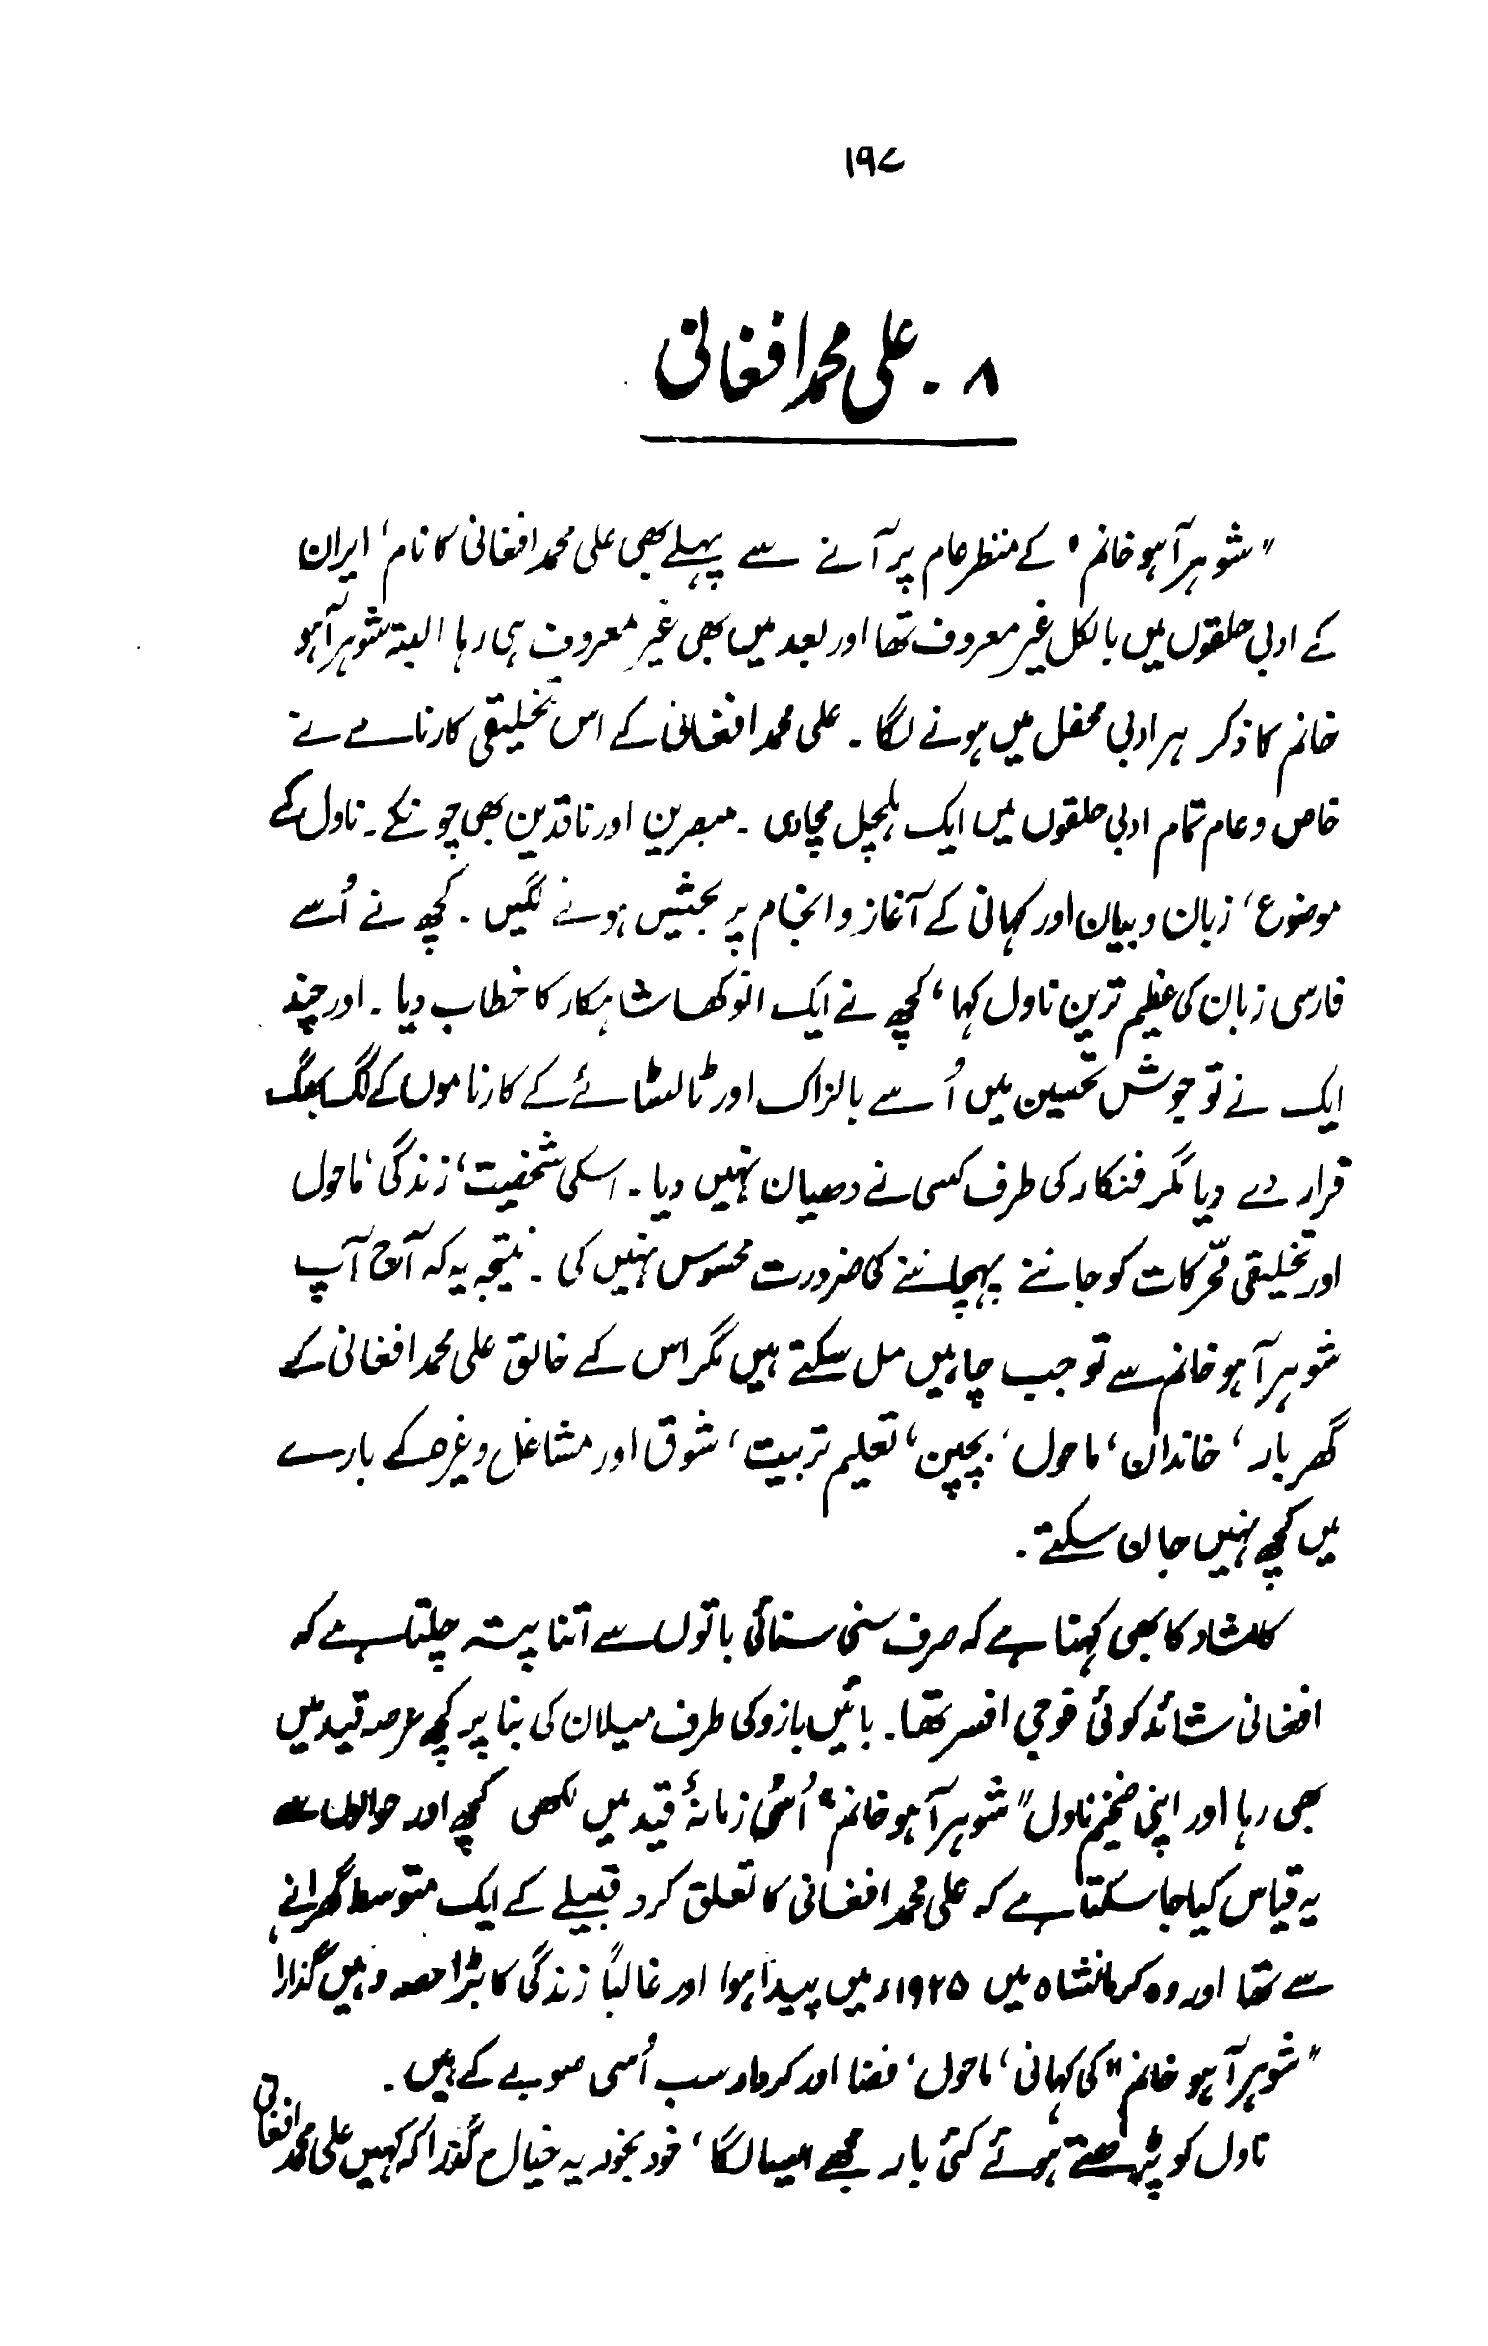 ۱۹۷
۸ ۔ علی محمد افغانی
"شوہر آہو خانم" کے منظر عام پر آنے سے پہلے بھی علی محمد افغانی کا نام، ایران
کے ادبی حلقوں میں بالکل غیر معروف تھا اور بعد میں بھی غیر معروف ہی رہا البتہ شوہر آہو
خانم کا ذکر ہر ادبی محفل میں ہونے لگا ۔ علی محمد افغانی کے اس تخلیقی کارنامے نے
خاص و عام تمام ادبی حلقوں میں ایک ہلچل مچا دی ۔ مبصرین اور ناقدین بھی چونکے ۔ ناول کے
موضوع، زبان و بیان اور کہانی کے آغاز و انجام پر بحثیں ہونے لگیں ۔ کچھ نے اُسے
فارسی زبان کی عظیم ترین ناول کہا، کچھ نے ایک انوکھا شاہکار کا خطاب دیا ۔ اور چند
ایک نے تو جوش تحسین میں اُسے بالزاک اور ٹالسٹائے کے کارناموں کے لگ بھگ
قرار دے دیا مگر فنکار کی طرف کسی نے دھیان نہیں دیا ۔ اسکی شخصیت، زندگی، ماحول
اور تخلیقی محّرکات کو جاننے پہچاننے کی ضرورت محسوس نہیں کی ۔ نتیجہ یہ کہ آج آپ
شوہر آہو خانم سے تو جب چاہیں مل سکتے ہیں مگر اس کے خالق علی محمد افغانی کے
گھر بار، خاندان، ماحول، بچپن، تعلیم تربیت، شوق اور مشاغل وغیرہ کے بارے
میں کچھ نہیں جان سکتے ۔
کامشاد کا بھی کہنا ہے کہ صرف سنی سنائی باتوں سے اتنا پتہ چلتا ہے کہ
افغانی شائد کوئی فوجی افسر تھا ۔ بائیں بازو کی طرف میلان کی بنا پر کچھ عرصہ قید میں
بھی رہا اور اپنی ضخیم ناول "شوہر آہو خانم" اُسی زمانۂ قید میں لکھی کچھ اور حوالوں سے
یہ قیاس کیا جا سکتا ہے کہ علی محمد افغانی کا تعلق کرد قبیلے کے ایک متوسط گھرانے
سے تھا اور وہ کرمانشاہ میں ۱۹۲۵ء میں پیدا ہوا اور غالباً زندگی کا بڑا حصہ وہیں گذارا،
"شوہر آہو خانم" کی کہانی، ماحول، فضا اور کردار سب اُسی صوبے کے ہیں ۔
ناول کو پڑھتے ہوئے کئی بار مجھے ایسا لگا، خود بخود یہ خیال گذرا کہ کہیں علی محمد افغانی